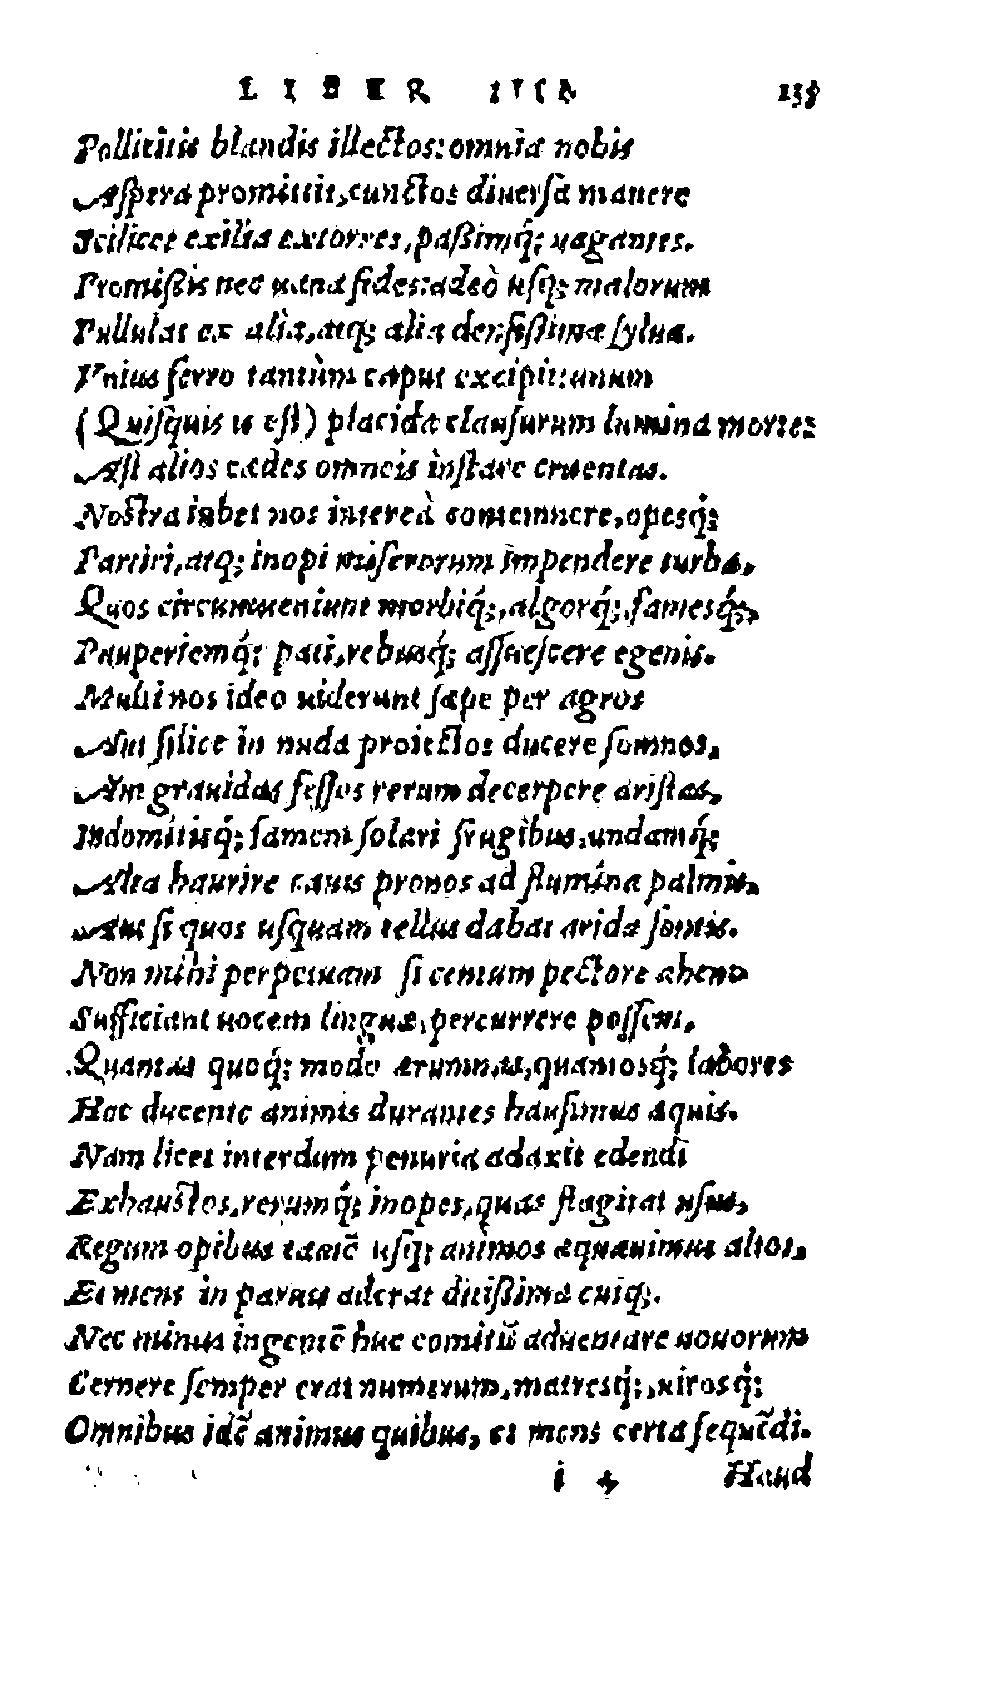 LIBER IIII. 135
Pollicitis blandis illectos: omnia nobis
Aspera promittit, cunctos diuersa manere
Scilicet exilia extorres, paßimq́; uagantes.
Promißis nec uana fides: adeò usq; malorum
Pullulat ex alia, atq; alia densissima sylua.
Vnius ferro tantùm caput excipit: unum
(Quisquis is est) placida clausurum lumina morte:
Ast alios cædes omneis instare cruentas.
Nostra iubet nos intereà contemnere, opesq́;
Partiri, atq; inopi miserorum impendere turbæ,
Quos circumueniunt morbiq́;, algorq́;, famesq́;,
Pauperiemq́; pati, rebusq́; assuescere egenis.
Multi nos ideo uiderunt sæpe per agros
Aut silice in nuda proiectos ducere somnos,
Aut grauidas fessos rerum decerpere aristas,
Indomitisq́; famem solari frugibus, undamq́;
Alta haurire cauis pronos ad flumina palmis,
Aut si quos usquam tellus dabat arida fontis.
Non mihi perpetuam si centum pectore aheno
Sufficiant uocem linguæ, percurrere possem,
Quantas quoq; modo ærumnas, quantosq́; labores
Hoc ducente animis durantes hausimus æquis.
Nam licet interdum penuria adaxit edendi
Exhaustos, rerumq́; inopes, quas flagitat usus,
Regum opibus tamẽ usq; animos æquauimus altos,
Et mens in paruis aderat ditißima cuiq;.
Nec minus ingentẽ huc comitũ aduentare nouorum
Cernere semper erat numerum, matresq́;, uirosq́;
Omnibus idẽ animus quibus, et mens certa sequẽdi.
i 4 Haud